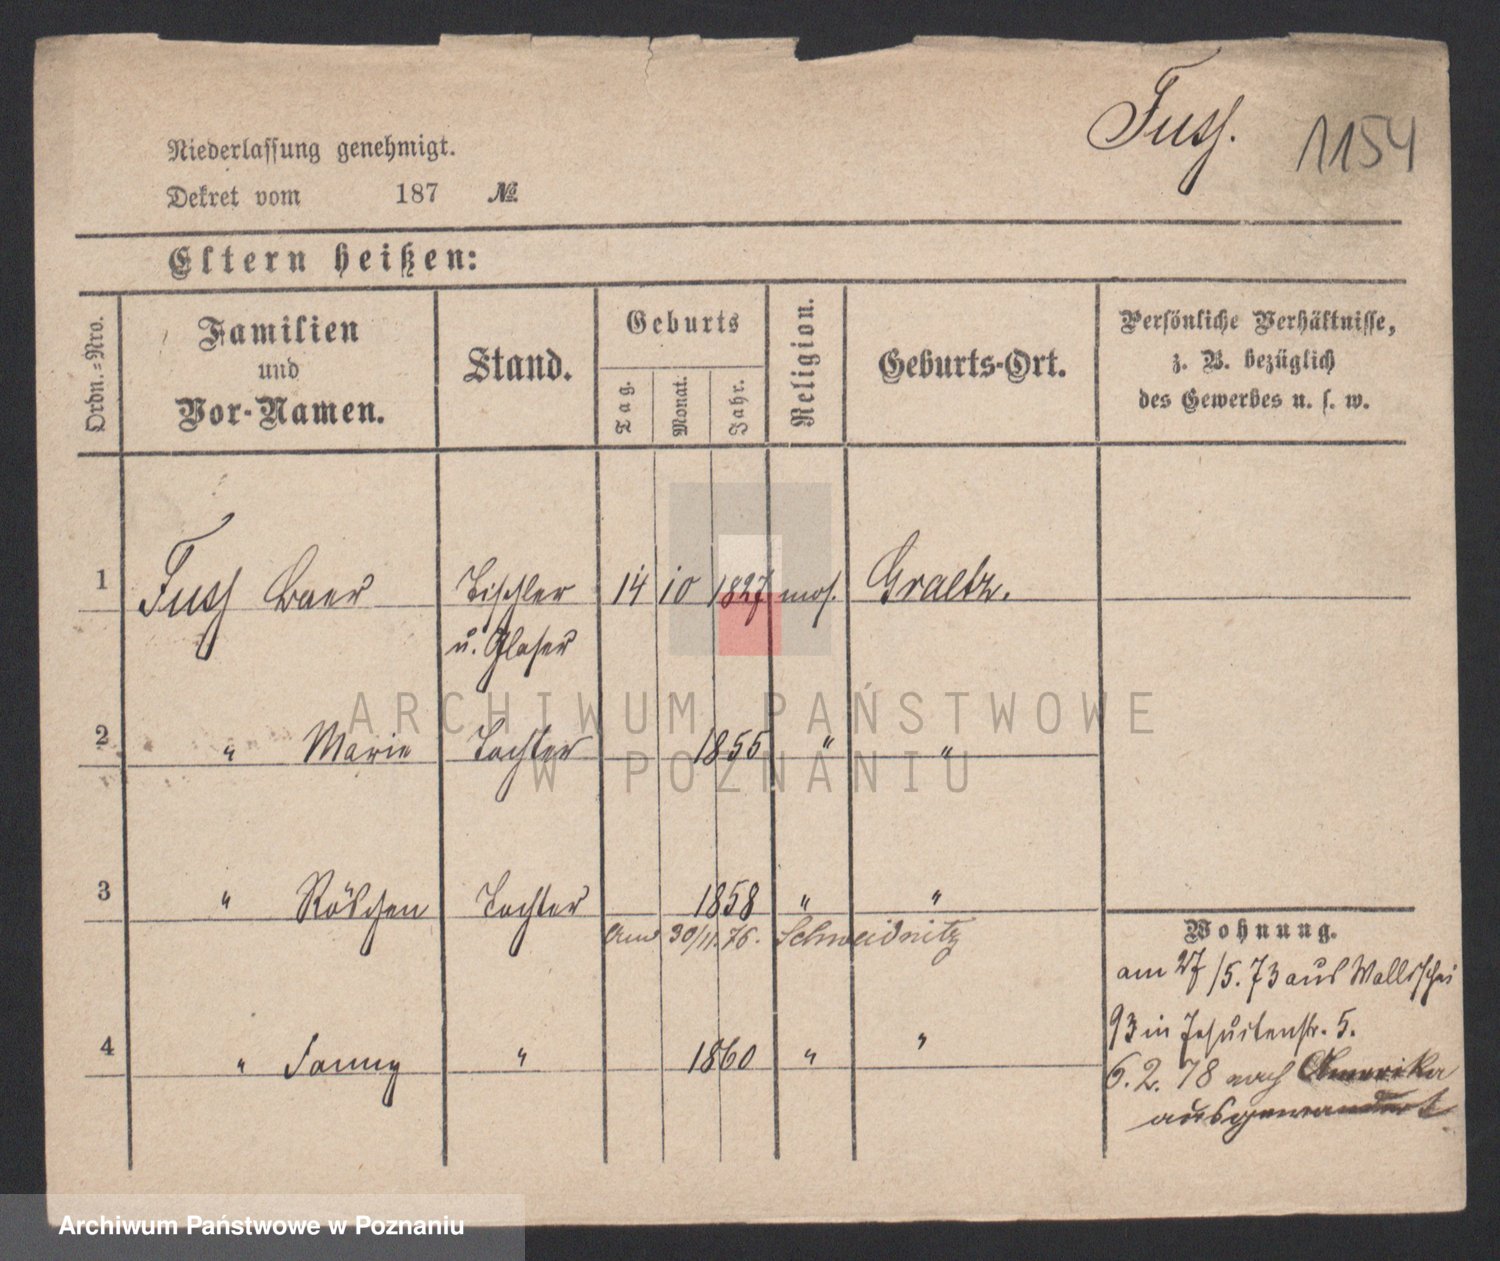 Fuss.
1154
Niederlassung genehmigt.
Dekret vom 187 №
Eltern heißen:
Ordn.=Nro.
Familien
und
Vor-Namen.
Stand.
Geburts
Tag.
Monat.
Jahr.
Religion.
Geburts-Ort.
Persönliche Verhältnisse,
z. B. bezüglich
des Gewerbes u. s. w.
1 Fuss Baer Tischler 14 10 1827 mos. Graetz.
u. Glaser
2 " Marie Tochter 1855 " "
3 " Röschen Tochter 1858 " "
30/11. 76. Schweidnitz
4 " Fanny " 1860 " "
Wohnung.
am 27/5. 73 aus Wallischei
93 in Jesuitenstr. 5.
6. 2. 78 nach Amerika
ausgewandert
ARCHIWUM PAŃSTWOWE
W POZNANIU
Archiwum Państwowe w Poznaniu